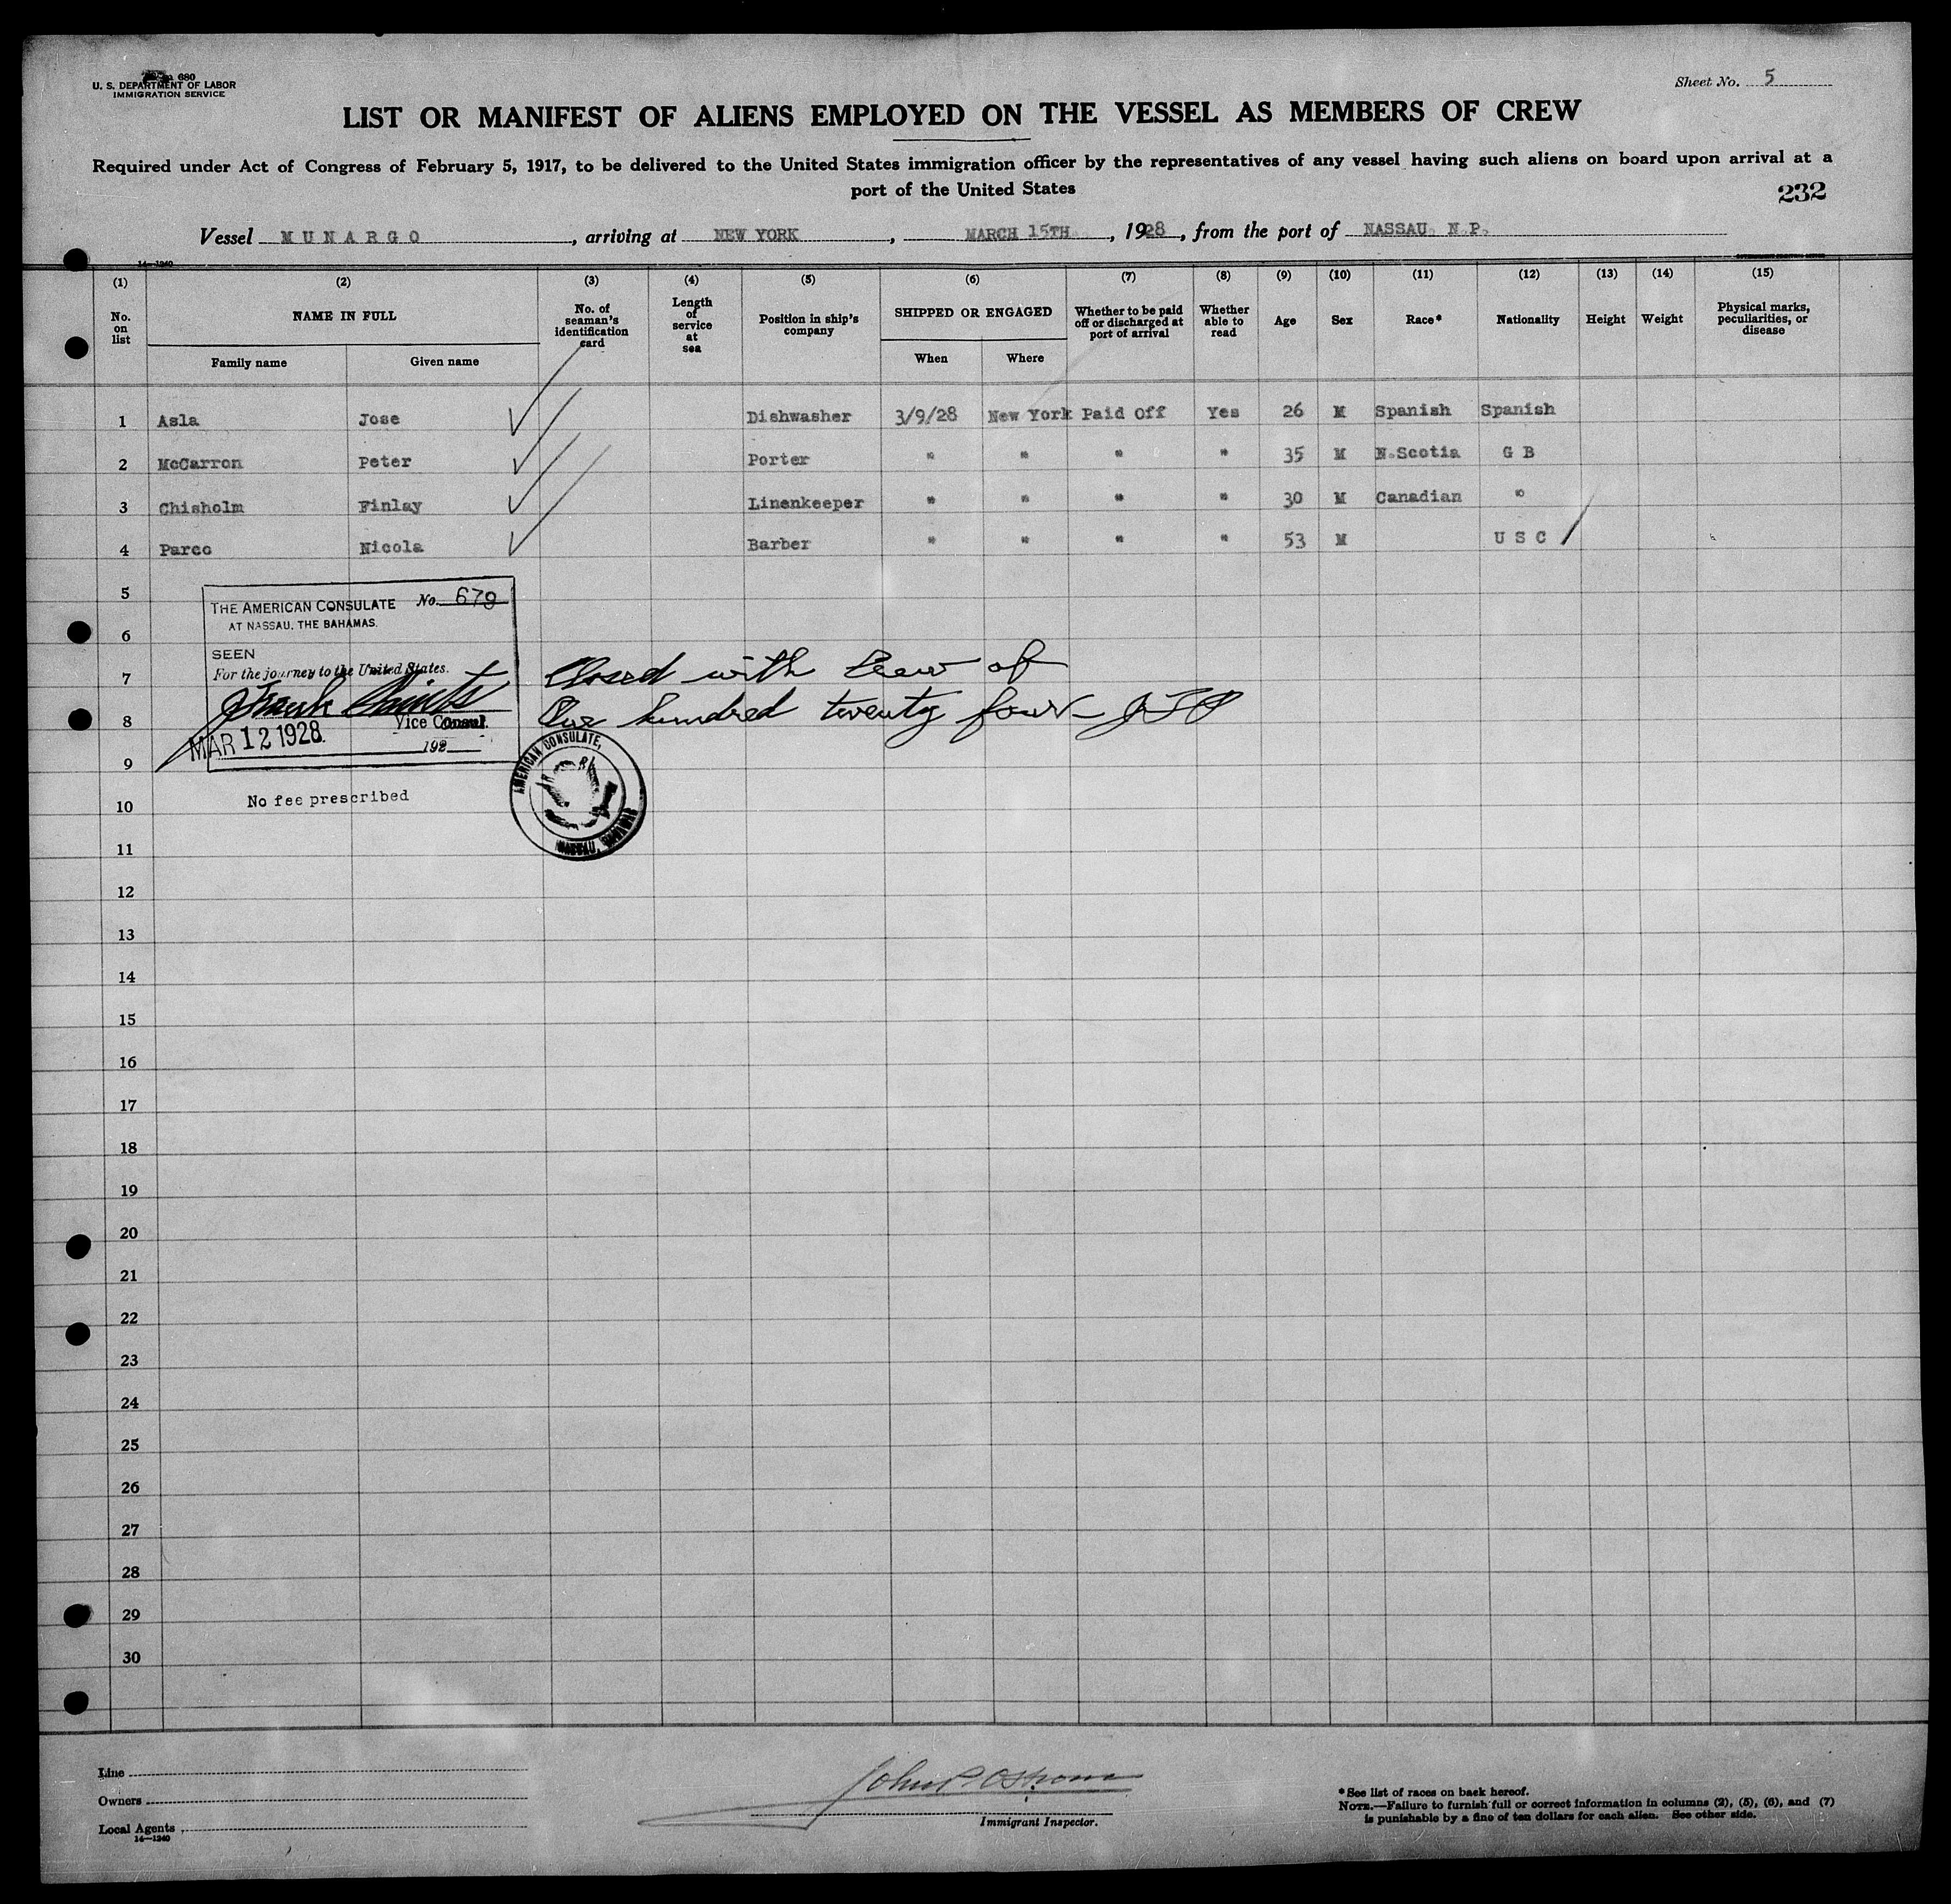 680
U. S. DEPARTMENT OF LABOR
IMMIGRATION SERVICE
Sheet No. 5
LIST OR MANIFEST OF ALIENS EMPLOYED ON THE VESSEL AS MEMBERS OF CREW
Required under Act of Congress of February 5, 1917, to be delivered to the United States immigration officer by the representatives of any vessel having such aliens on board upon arrival at a
port of the United States
232
Vessel MUNARGO, arriving at NEW YORK, MARCH 15TH, 1928, from the port of NASSAU N.P.
14—1240
(1) (2) (3) (4) (5) (6) (7) (8) (9) (10) (11) (12) (13) (14) (15)
No. on list NAME IN FULL Family name Given name No. of seaman's identification card Length of service at sea Position in ship's company SHIPPED OR ENGAGED When Where Whether to be paid off or discharged at port of arrival Whether able to read Age Sex Race* Nationality Height Weight Physical marks, peculiarities, or disease
1 Asla Jose Dishwasher 3/9/28 New York Paid Off Yes 26 M Spanish Spanish
2 McCarron Peter Porter " " " " 35 M N.Scotia G B
3 Chisholm Finlay Linenkeeper " " " " 30 M Canadian "
4 Parco Nicola Barber " " " " 53 M U S C
5
6
7
8
9
10
11
12
13
14
15
16
17
18
19
20
21
22
23
24
25
26
27
28
29
30
THE AMERICAN CONSULATE No. 679
AT NASSAU, THE BAHAMAS.
SEEN
For the journey to the United States.
Vice Consul.
MAR 12 1928
192
No fee prescribed
Closed with Crew of
One hundred twenty four
AMERICAN CONSULATE,
NASSAU,
Line
Owners
Local Agents
14—1240
Immigrant Inspector.
*See list of races on back hereof.
NOTE.—Failure to furnish full or correct information in columns (2), (5), (6), and (7)
is punishable by a fine of ten dollars for each alien. See other side.